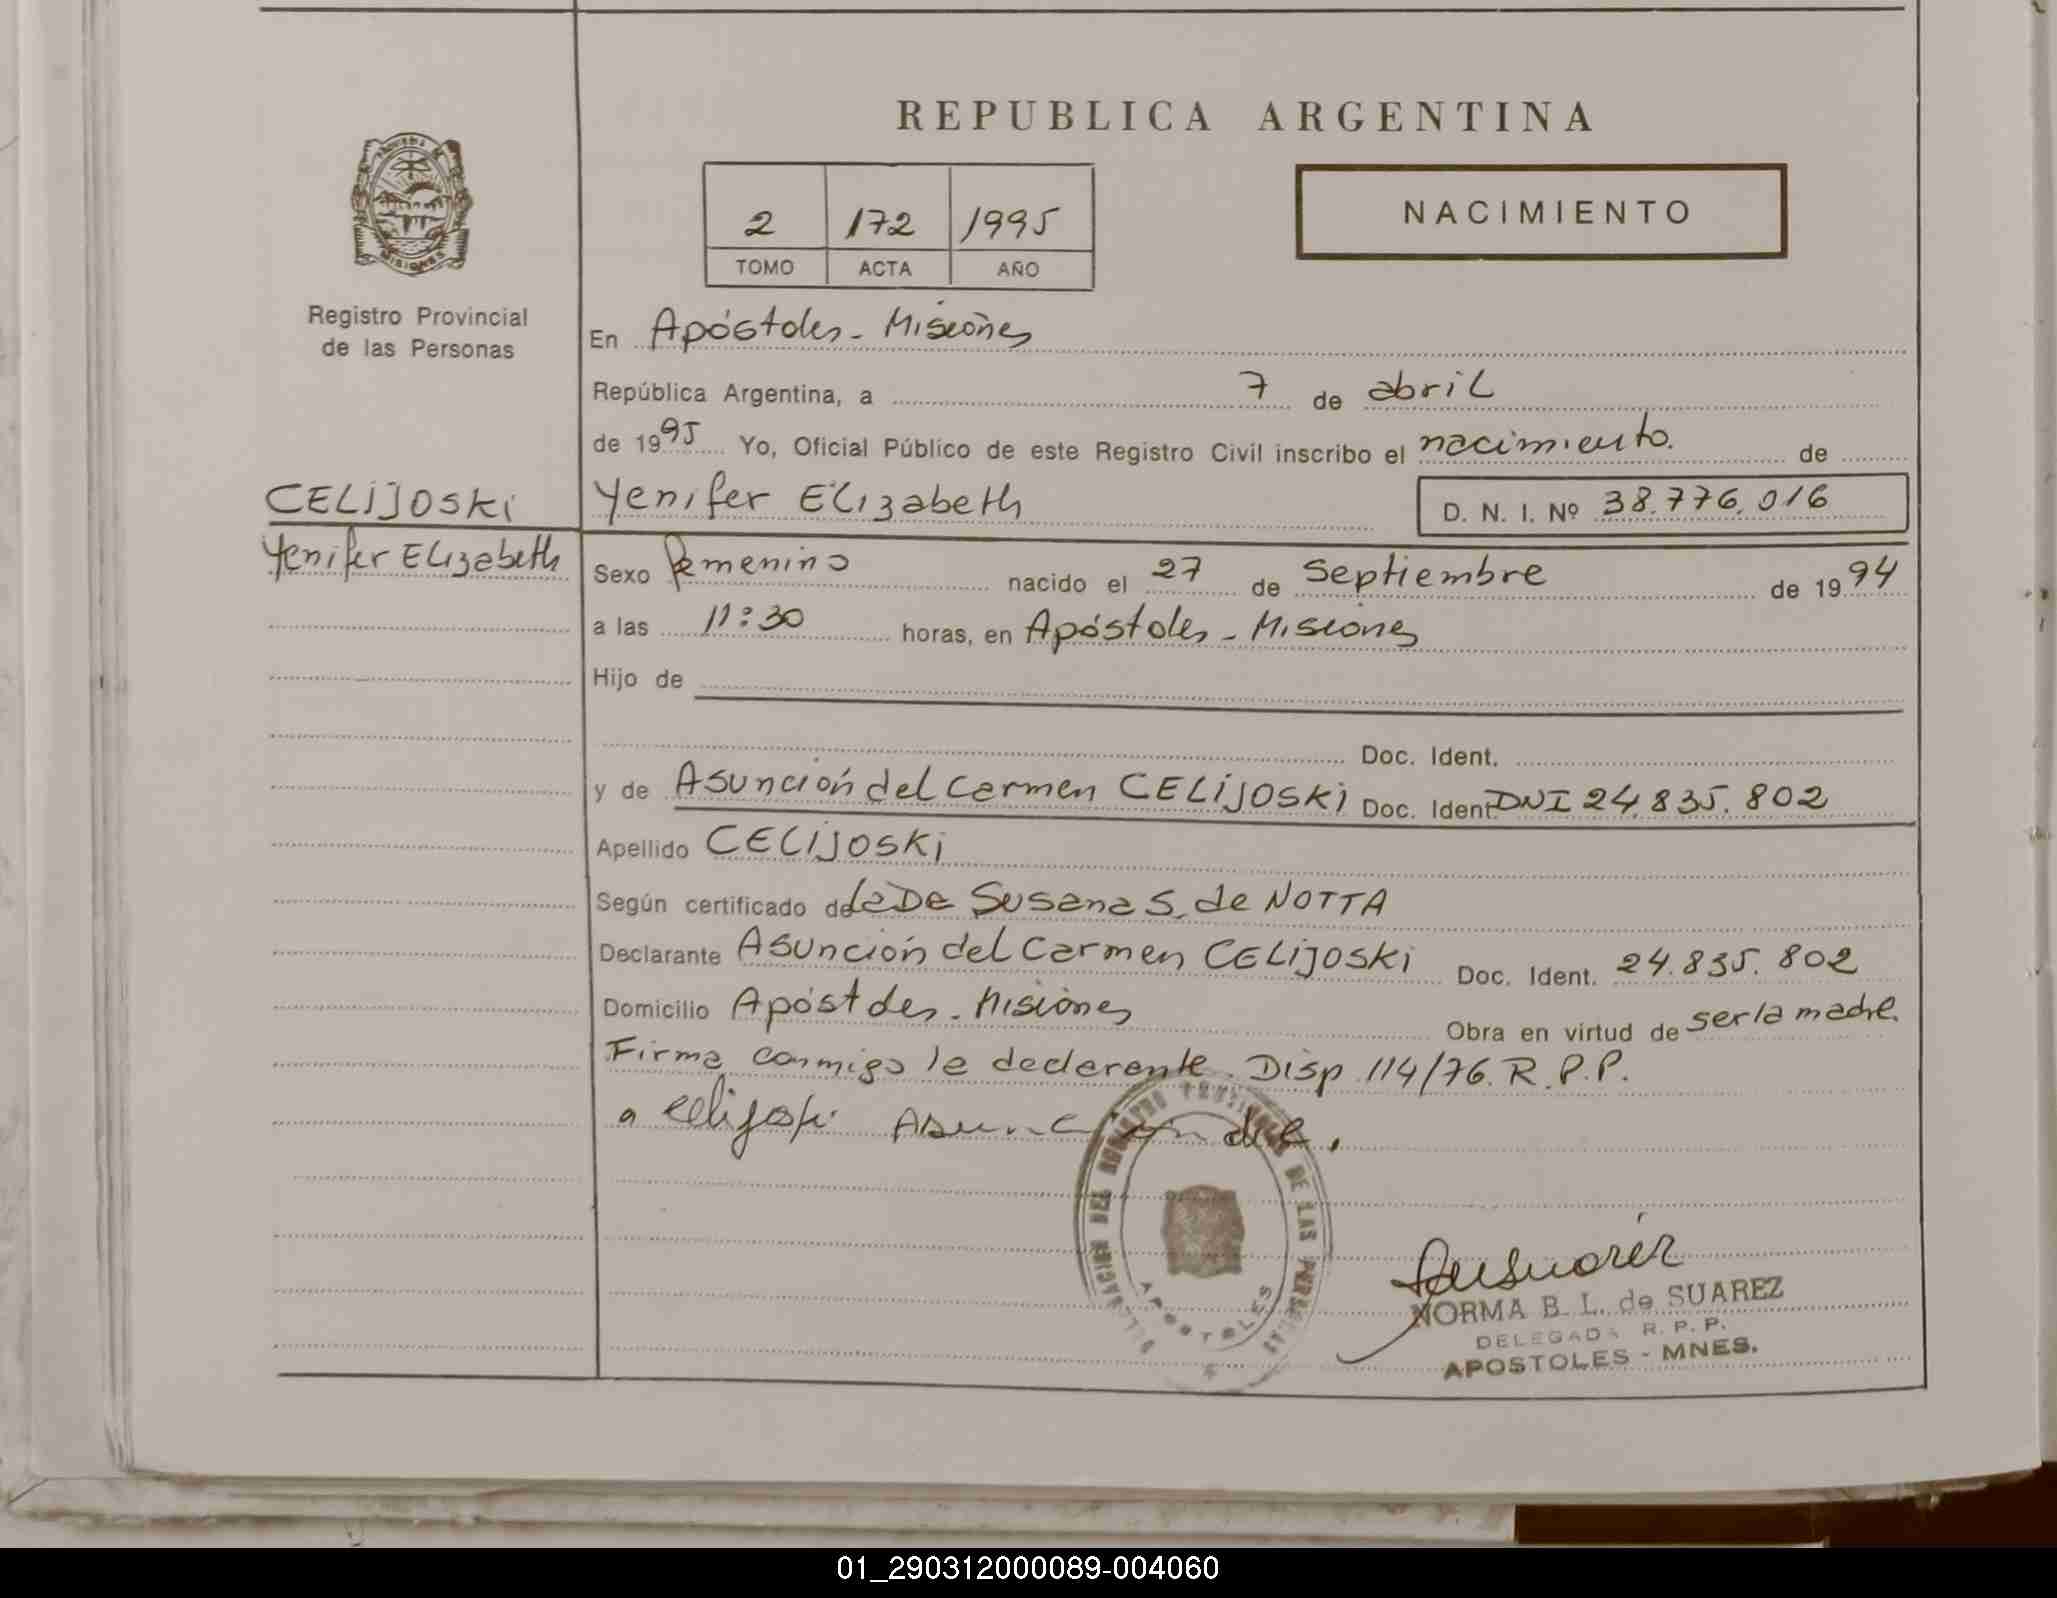 REPUBLICA ARGENTINA
2 172 1995
TOMO ACTA AÑO
NACIMIENTO
MISIONES
Registro Provincial
de las Personas
En Apóstoles - Misiones
República Argentina, a 7 de abril
de 1995 Yo, Oficial Público de este Registro Civil inscribo el nacimiento. de
CELIJOSKI
Yenifer Elizabeth
Yenifer Elizabeth D. N. I. Nº 38.776.016
Sexo femenino nacido el 27 de Septiembre de 1994
a las 11:30 horas, en Apóstoles - Misiones
Hijo de
Doc. Ident.
y de Asunción del Carmen CELIJOSKI Doc. Ident. DNI 24.835.802
Apellido CELIJOSKI
Según certificado de la De Susana S. de NOTTA
Declarante Asunción del Carmen CELIJOSKI Doc. Ident. 24.835.802
Domicilio Apóstoles - Misiones Obra en virtud de ser la madre.
Firma conmigo la declarante. Disp. 114/76. R.P.P.
Celijoski Asuncion del.
DELEGACION DEL REGISTRO PROVINCIAL DE LAS PERSONAS
APOSTOLES
NORMA B. L. de SUAREZ
DELEGADA R. P. P.
APOSTOLES - MNES.
01_290312000089-004060